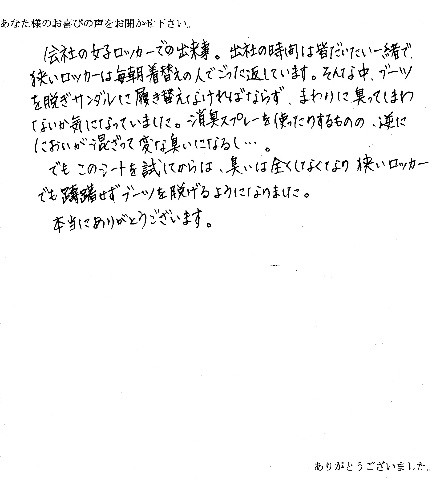 あなた様のお喜びの声をお聞かせ下さい。
会社の女子ロッカーでの出来事。出社の時間は皆だいたい一緒で、
狭いロッカーは毎朝着替えの人でごった返しています。そんな中、ブーツ
を脱ぎサンダルに履き替えなければならず、まわりに臭ってしまわ
ないか気になっていました。消臭スプレーを使ったりするものの、逆に
においが混ざって変な臭いになるし…。
でもこのシートを試してからは、臭いは全くしなくなり狭いロッカー
でも躊躇せずブーツを脱げるようになりました。
本当にありがとうございます。
ありがとうございました。